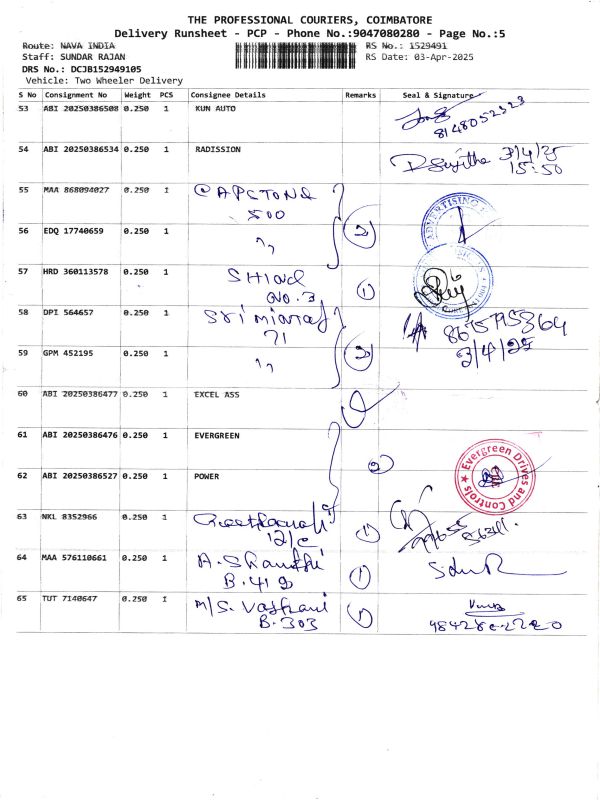 THE PROFESSIONAL COURIERS, COIMBATORE
Delivery Runsheet - PCP - Phone No.:9047080280 - Page No.:5
Route: NAVA INDIA
RS No.: 1529491
Staff: SUNDAR RAJAN
RS Date: 03-Apr-2025
DRS No.: DCJB152949105
Vehicle: Two Wheeler Delivery
S No Consignment No Weight PCS Consignee Details Remarks Seal & Signature
53 ABI 20250386508 0.250 1 KUN AUTO
8148052323
54 ABI 20250386534 0.250 1 RADISSION
3/4/25
15:50
55 MAA 868094027 0.250 1
500
ADVERTISING
56 EDQ 17740659 0.250 1 " 2
57 HRD 360113578 0.250 1
NO.3 1
58 DPI 564657 0.250 1 Sri
71
59 GPM 452195 0.250 1 " 2
3/4/25
60 ABI 20250386477 0.250 1 EXCEL ASS
61 ABI 20250386476 0.250 1 EVERGREEN
2
Evergreen Drives and Controls
62 ABI 20250386527 0.250 1 POWER
63 NKL 8352966 0.250 1
1
64 MAA 576110661 0.250 1 A. Shanthi
B.419 1
65 TUT 7140647 0.250 1 M/S.
B.303 1